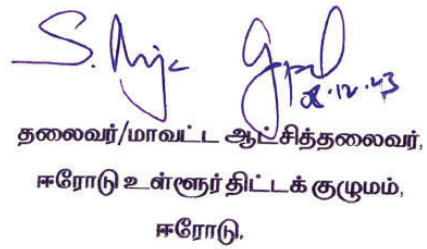 08.12.23
தலைவர்/மாவட்ட ஆட்சித்தலைவர்,
ஈரோடு உள்ளூர் திட்டக் குழுமம்,
ஈரோடு.